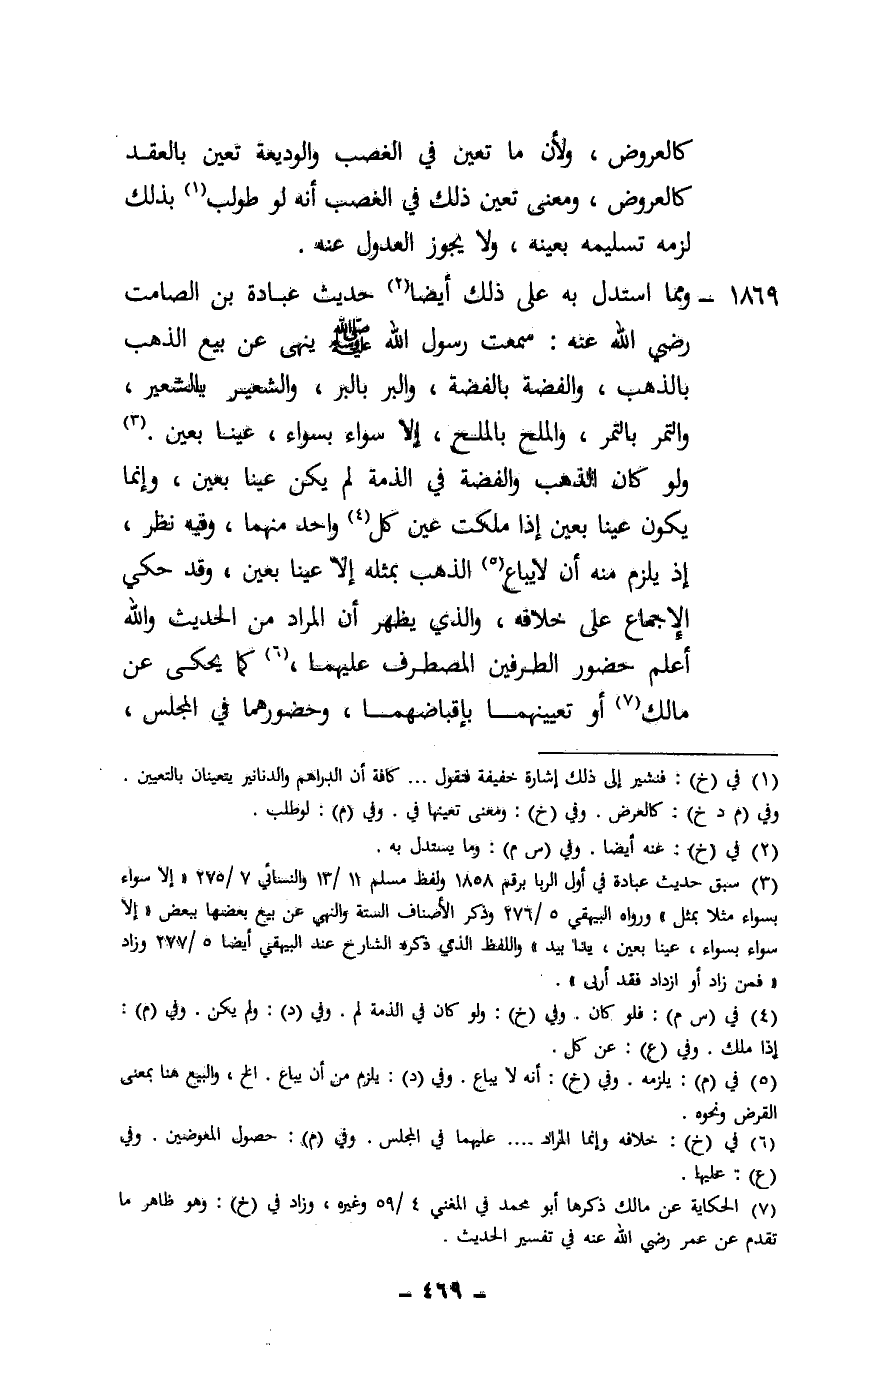 كالعروض ، ولأن ما تعين في الغصب والوديعة تعين بالعقـد
كالعروض ، ومعنى تعين ذلك في الغصب أنه لو طولب(١) بذلك
لزمه تسليمه بعينه ، ولا يجوز العدول عنه .
١٨٦٩ – ومما استدل به على ذلك أيضا(٢) حديث عبادة بن الصامت
رضي الله عنه : سمعت رسول الله ﷺ ينهى عن بيع الذهب
بالذهب ، والفضة بالفضة ، والبر بالبر ، والشعيـر بالشعير ،
والتمر بالتمر ، والملح بالملـح ، إلا سواء بسواء ، عينـا بعين .(٣)
ولو كان الذهب والفضة في الذمة لم يكن عينا بعين ، وإنما
يكون عينا بعين إذا ملكت عين كل(٤) واحد منهما ، وفيه نظر ،
إذ يلزم منه أن لايباع(٥) الذهب بمثله إلا عينا بعين ، وقد حكي
الإجماع على خلافه ، والذي يظهر أن المراد من الحديث والله
أعلم حضور الطـرفين المصطـرف عليهمـا ،(٦) كما يحكـى عن
مالك(٧) أو تعيينهمـــا بإقباضهمـــا ، وحضورهما في المجلس ،
(١) في (خ) : فنشير إلى ذلك إشارة خفيفة فنقول ... كافة أن الدراهم والدنانير يتعينان بالتعيين .
وفي (م د خ) : كالعرض . وفي (خ) : ومعنى تعينها في . وفي (م) : لوطلب .
(٢) في (خ) : عنه أيضا . وفي (س م) : وما يستدل به .
(٣) سبق حديث عبادة في أول الربا برقم ١٨٥٨ ولفظ مسلم ١١ /١٣ والنسائي ٧ /٢٧٥ « إلا سواء
بسواء مثلا بمثل » ورواه البيهقي ٥ /٢٧٦ وذكر الأصناف الستة والنهي عن بيع بعضها ببعض « إلا
سواء بسواء ، عينا بعين ، يدا بيد » واللفظ الذي ذكره الشارح عند البيهقي أيضا ٥ /٢٧٧ وزاد
« فمن زاد أو ازداد فقد أربى » .
(٤) في (س م) : فلو كان . وفي (خ) : ولو كان في الذمة لم . وفي (د) : ولم يكن . وفي (م) :
إذا ملك . وفي (ع) : عن كل .
(٥) في (م) : يلزمه . وفي (خ) : أنه لا يباع . وفي (د) : يلزم من أن يباع . الخ ، والبيع هنا بمعنى
القرض ونحوه .
(٦) في (خ) : خلافه وإنما المراد .... عليهما في المجلس . وفي (م) : حصول المعوضين . وفي
(ع) : عليها .
(٧) الحكاية عن مالك ذكرها أبو محمد في المغني ٤ /٥٩ وغيره ، وزاد في (خ) : وهو ظاهر ما
تقدم عن عمر رضي الله عنه في تفسير الحديث .
– ٤٦٩ –